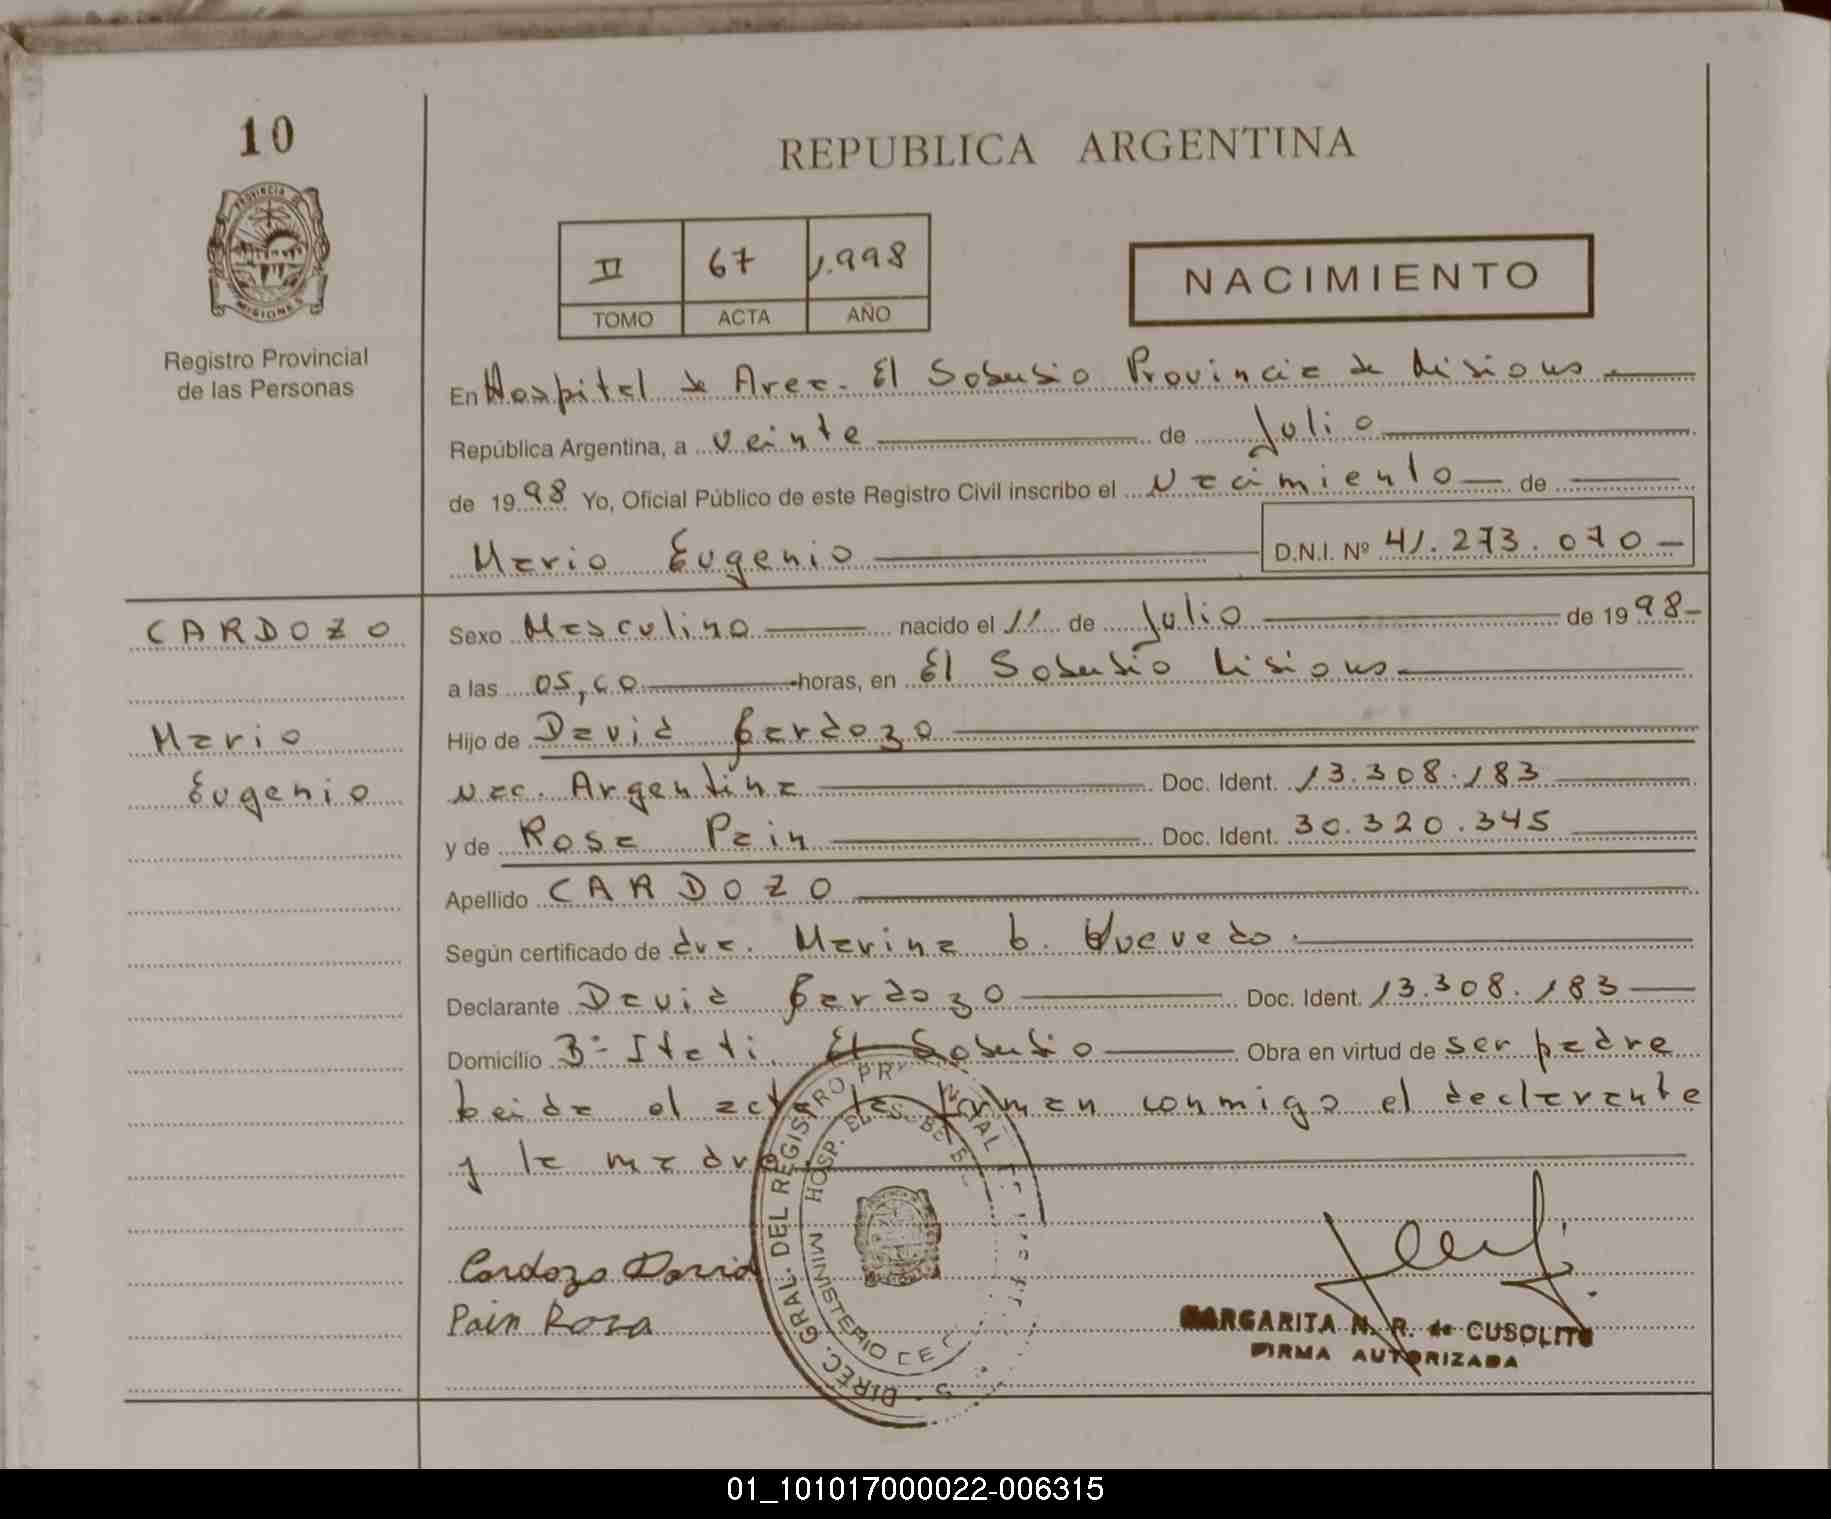 10
PROVINCIA DE
MISIONES
Registro Provincial
de las Personas
REPUBLICA ARGENTINA
II 67 1.998
TOMO ACTA AÑO
NACIMIENTO
En Hospital de Area. El Soberbio Provincia de Misiones
República Argentina, a veinte de Julio
de 1998 Yo, Oficial Público de este Registro Civil inscribo el Nacimiento de
Mario Eugenio D.N.I. Nº 41.273.070
CARDOZO
Mario
Eugenio
Sexo Masculino nacido el 11 de Julio de 1998
a las 05,00 horas, en El Soberbio Misiones
Hijo de David Cardozo
Nac. Argentina Doc. Ident. 13.308.183
y de Rosa Pain Doc. Ident. 30.320.345
Apellido CARDOZO
Según certificado de dra. Marina G. Quevedo.
Declarante David Cardozo Doc. Ident. 13.308.183
Domicilio Bº Itati El Soberbio Obra en virtud de ser padre
Leida el acta la firman conmigo el declarante
y la madre
Cardozo David
Pain Rosa
DIREC. GRAL. DEL REGISTRO
MINISTERIO DE
HOSP. EL SOBERB
MARGARITA N. R. de CUSOLITO
FIRMA AUTORIZADA
01_101017000022-006315